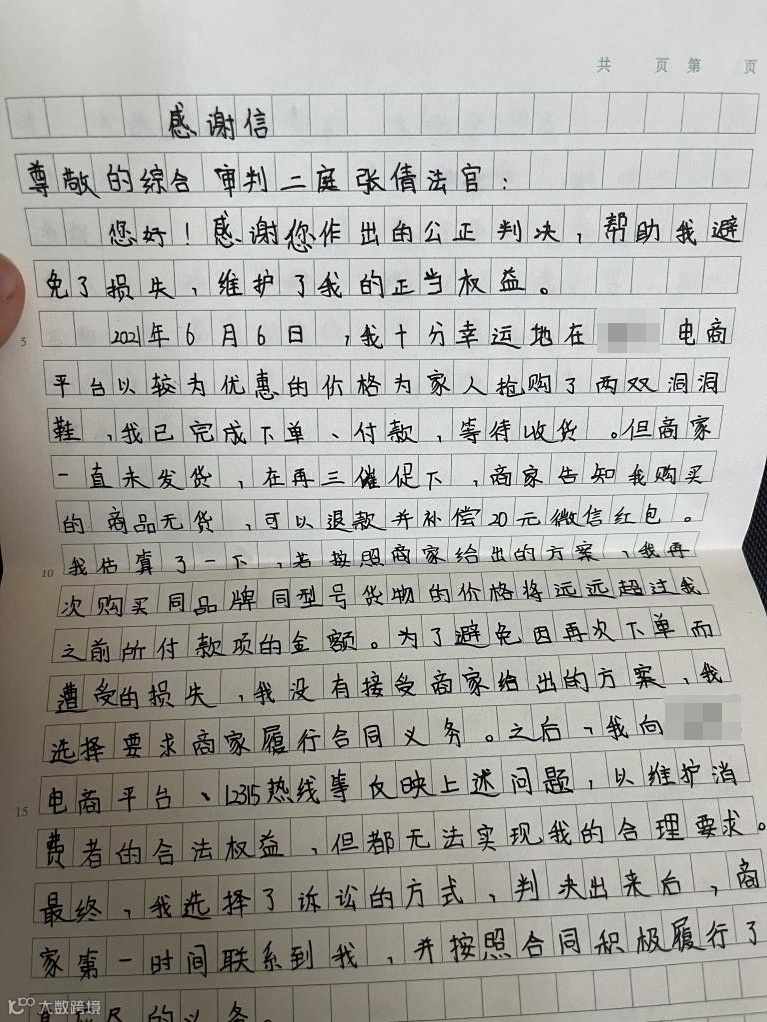 共 页 第 页
感谢信
尊敬的综合审判二庭张倩法官:
您好!感谢您作出的公正判决,帮助我避
免了损失,维护了我的正当权益。
5 2021年6月6日,我十分幸运地在 电商
平台以较为优惠的价格为家人抢购了两双洞洞
鞋,我已完成下单、付款,等待收货。但商家
一直未发货,在再三催促下,商家告知我购买
的商品无货,可以退款并补偿20元微信红包。
10 我估算了一下,若按照商家给出的方案,我再
次购买同品牌同型号货物的价格将远远超过我
之前所付款项的金额。为了避免因再次下单而
遭受的损失,我没有接受商家给出的方案,我
选择要求商家履行合同义务。之后,我向
15 电商平台、12315热线等反映上述问题,以维护消
费者的合法权益,但都无法实现我的合理要求。
最终,我选择了诉讼的方式,判决出来后,商
家第一时间联系到我,并按照合同积极履行了
的义务。
大数跨境